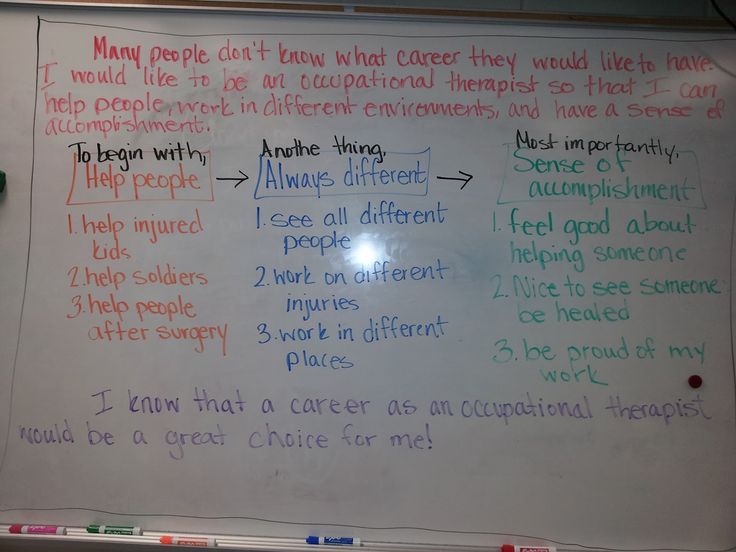 Many people don't know what career they would like to have.
I would like to be an occupational therapist so that I can
help people, work in different environments, and have a sense of
accomplishment.
To begin with,
Help people
1. help injured
kids
2. help soldiers
3. help people
after surgery
Anothe thing,
Always different
1. see all different
people
2. work on different
injuries
3. work in different
places
Most importantly,
Sense of
accomplishment
1. feel good about
helping someone
2. Nice to see someone
be healed
3. be proud of my
work
I know that a career as an occupational therapist
would be a great choice for me!